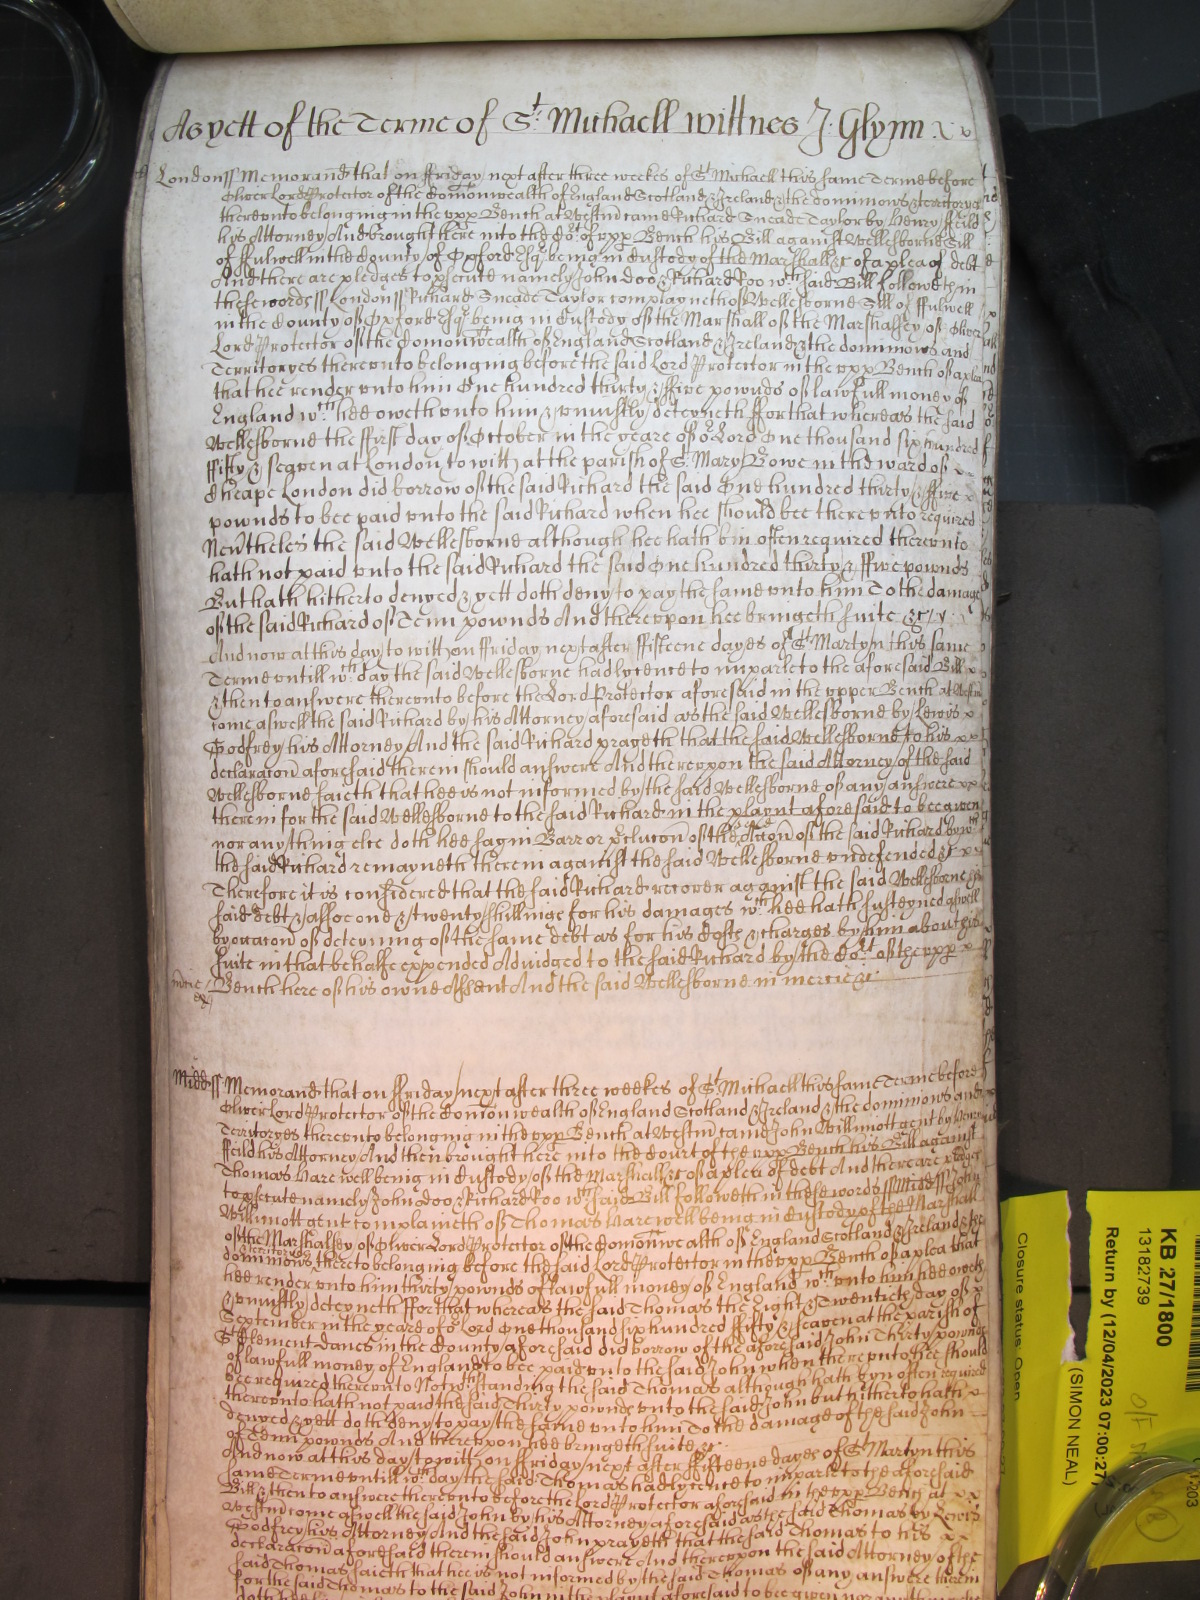 As yett of the Terme of St. Michaell Wittnes J: Glynn
London ss Memorand that on ffriday next after three weekes of St Michaell this same Terme before
Oliver Lord Protector of the Comonwealth of England Scotland & Ireland & the dominions & territoryes
thereunto belonging in the vpp Bench at Westm came Richard Sneade Taylor by Henry ffeild
his Attorney And brought here into the Cort of vpp Bench his Bill against Wellesborne Sill
of ffulwell in the County of Oxford Esqr being in Custody of the Marshall &c of a plea of debt
And there are pledges to psecute namely John Doo & Richard Roo wch said Bill followeth in
these words ss London ss Richard Sneade Taylor complayneth of Wellesborne Sill of ffulwell
in the County of Oxford Esqr being in Custody of the Marshall of the Marshalsey of Oliver
Lord Protector of the Comonwealth of England Scotland & Ireland & the dominions and
Territoryes thereunto belonging before the said Lord Protector in the vpp Bench of a plea
that hee render vnto him One hundred thirty & ffive pounds of lawfull money of
England wch hee oweth vnto him & vniustly deteyneth ffor that whereas the said
Wellesborne the ffirst day of October in the yeare of or Lord One thousand six hundred
ffifty & seaven at London to witt at the parish of St Mary Bowe in the ward of
Cheape London did borrow of the said Richard the said One hundred thirty & ffive
pownds to bee paid vnto the said Richard when hee should bee therevnto required
Nevtheles the said Wellesborne although hee hath bin often required therevnto
hath not paid vnto the said Richard the said One hundred thirty & ffive pownds
But hath hitherto denyed & yett doth deny to pay the same vnto him To the damage
of the said Richard of Tenn pownds And therevpon hee bringeth suite &c
And now at this day to witt on ffriday next after ffifteene dayes of St Martyn this same
Terme vntill wch day the said Wellesborne had lycence to imparle to the aforesaid Bill
& then to answere therevnto before the Lord Protector aforesaid in the vpper Bench at Westm
come aswell the said Richard by his Attorney aforesaid as the said Wellesborne by Lewis
Godfrey his Attorney And the said Richard prayeth that the said Wellesborne to his
declaracon aforesaid therein should answere And therevpon the said Attorney of the said
Wellesborne saieth that hee is not informed by the said Wellesborne of any answere
therein for the said Wellesborne to the said Richard in the playnt aforesaid to bee given
nor any thing else doth hee say in Barr or pclucon of the accon of the said Richard by wch
the said Richard remayneth therein against the said Wellesborne vndefended &c
Therefore it is considered that the said Richard recover against the said Wellesborne his
said debt & allsoe one & twenty shillings for his damages wch hee hath susteyned aswell
by occasion of deteyning of the same debt as for his Costs & charges by him about his
suite in that behalfe expended Adiudged to the said Richard by the Cort of the vpp
Bench here of his owne Assent And the said Wellesborne in mercie &c
Midd ss Memorand that on ffriday next after three weekes of St Michaell this same Terme before
Oliver Lord Protector of the Comonwealth of England Scotland & Ireland & the dominions and
Territoryes therevnto belonging in the vpp Bench at Westm came John Willimott gent by Henry
ffeild his Attorney And then brought here into the Court of the vpp Bench his Bill against
Thomas Harewell being in Custody of the Marshall &c of a plea of debt And there are pledges
to psecute namely John Doo & Richard Roo wch said Bill followeth in these words ss Midd ss John
Willimott gent complaineth of Thomas Harewell being in Custody of the Marshall
of the Marshalsey of Oliver Lord Protector of the Comonwealth of England Scotland & Ireland & the
dominions & Territoryes thereto belonging before the said Lord Protector in the vpp Bench of a plea that
hee render vnto him thirty pownds of lawfull money of England wch vnto him hee oweth
& vniustly deteyneth ffor that whereas the said Thomas the Eight & Twentieth day of
September in the yeare of or Lord One thousand six hundred ffifty & seaven at the parish of
St Clement Danes in the County aforesaid did borrow of the aforesaid John Thirty pownds
of lawfull money of England to bee paid vnto the said John when therevnto hee should
bee required therevnto Notwthstanding the said Thomas although hath byn often required
therevnto hath not paid the said Thirty pownds vnto the said John but hitherto hath
denyed & yett doth deny to pay the same vnto him To the damage of the said John
of Tenn pownds And therevpon hee bringeth suite &c
And now at this day to witt on ffriday next after ffifteene dayes of St Martyn this
same Terme vntill wch day the said Thomas had lycence to imparle to the aforesaid
Bill & then to answere therevnto before the Lord Protector aforesaid in the vpp Bench at
Westm come aswell the said John by his Attorney aforesaid as the said Thomas by Lewis
Godfrey his Attorney And the said John prayeth that the said Thomas to his
declaracon aforesaid therein should answere And therevpon the said Attorney of the
said Thomas saieth that hee is not informed by the said Thomas of any answere therein
for the said Thomas to the said John in the playnt aforesaid to bee given nor any thing
KB 27/1800
13182739
Return by (12/04/2023 07:00:27)
(SIMON NEAL)
Closure status: Open